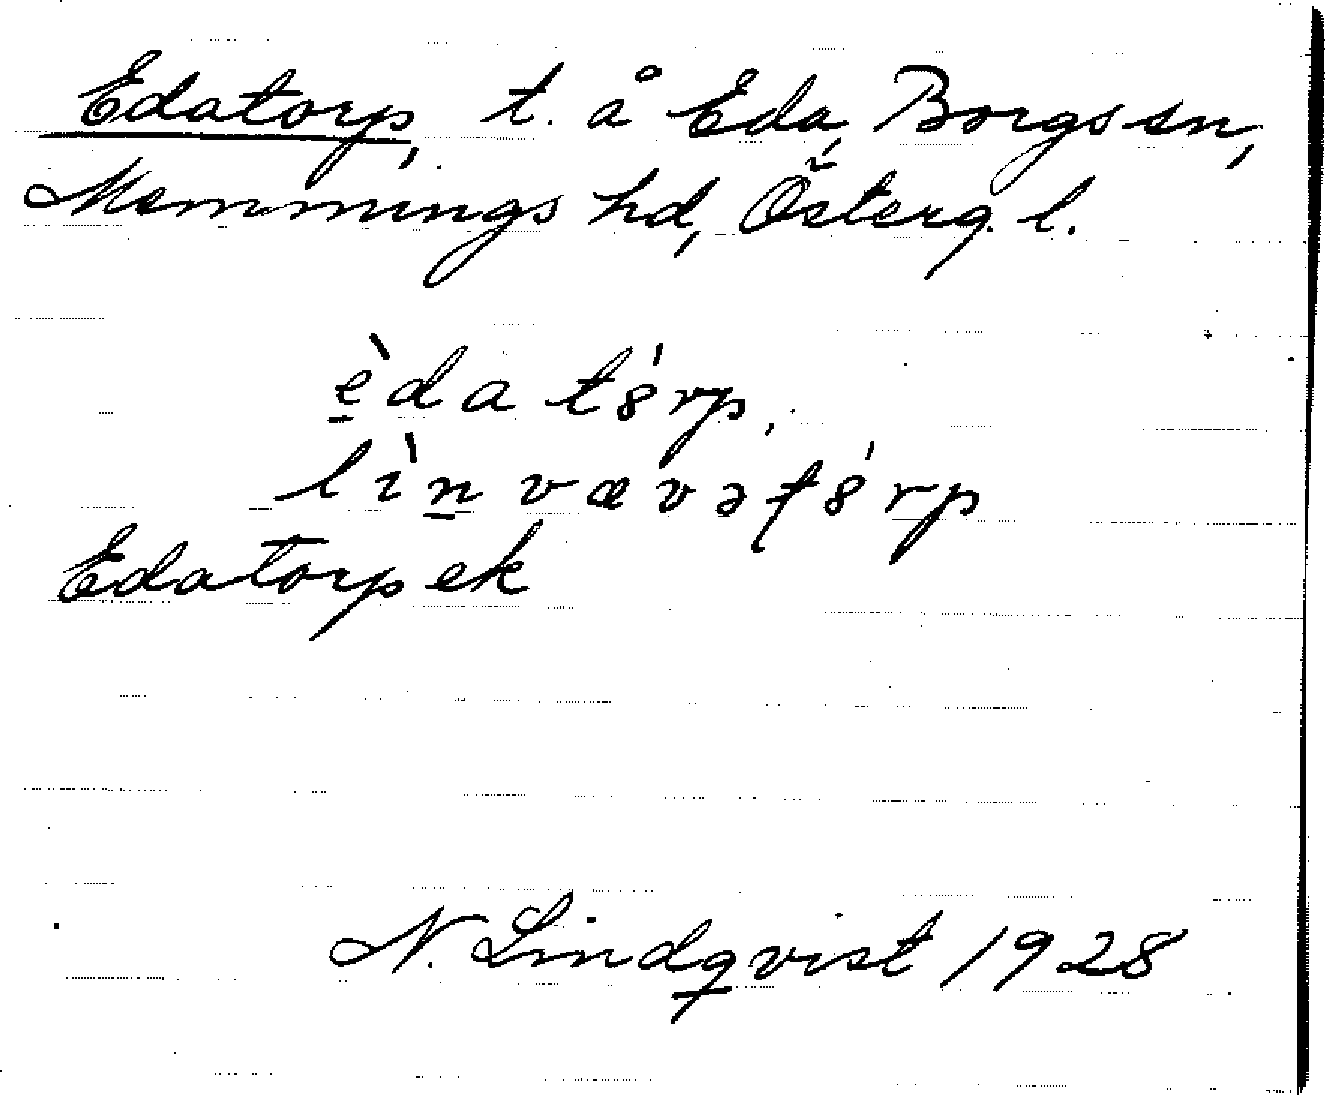 Edatorp, t. å Eda, Borgs sn,
Memmings hd, Österg. l.
è̠da tȣ́rp,
lìn̠ vævəʈȣ́rp
Edatorp ek
N. Lindqvist 1928